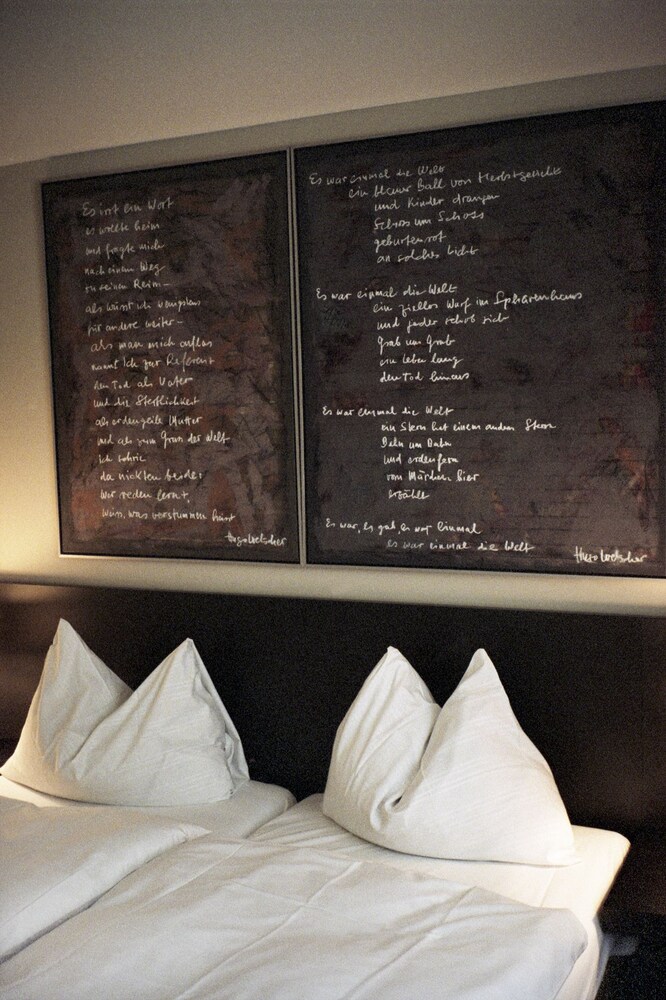 Es irrt ein Wort
es wollte heim
und fragte mich
nach einem Weg
zu seinem Reim –
als wüsst ich wenigstens
für andere weiter –
als man mich auflas
nannt ich zur Referenz
den Tod als Vater
und die Sterblichkeit
als erdengeile Mutter
und als zum Grun der Welt
ich schrie
da nickten beide:
wer reden lernt,
weiss, was verstummen heisst
Hugo Loetscher
Es war einmal die Welt
ein blauer Ball von
und Kinder drangen
Schoss um Schoss
geburtenrot
an solches Licht
Es war einmal die Welt
ein ziellos Wurf im Sphärenhaus
und jeder schob sich
Grab um Grab
ein Leben lang
den Tod hinaus
Es war einmal die Welt
ein Stern bot einem andern Stern
Bahn um Bahn
und erdenfern
vom Märchen hier
erzählt
Es war, es gab, es war einmal
es war einmal die Welt
Hugo Loetscher